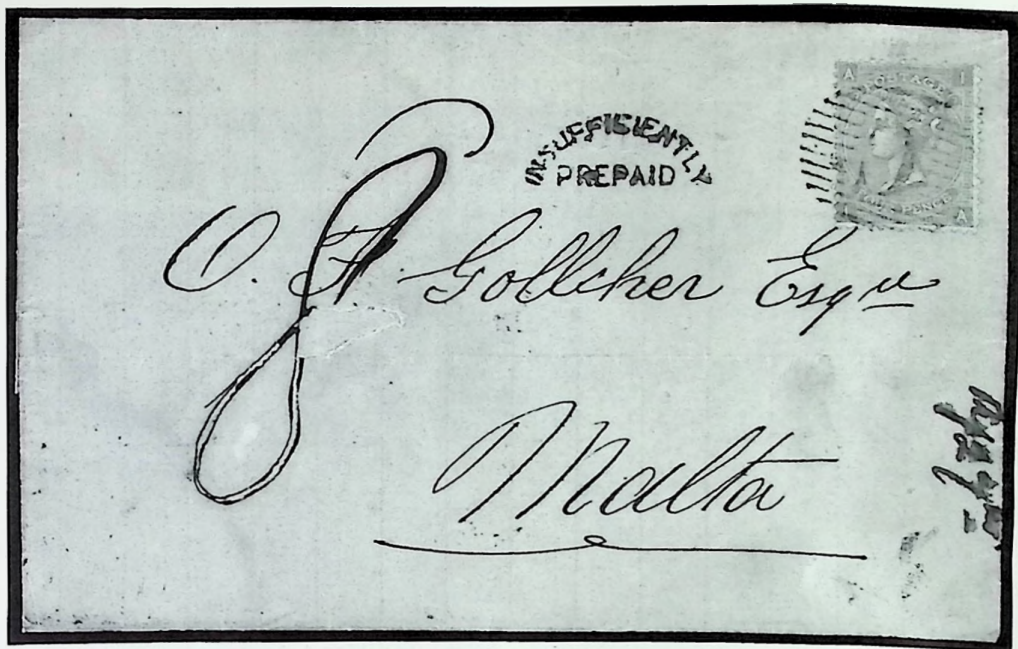 INSUFFICIENTLY
PREPAID
A I
POSTAGE
PENCE
A
8
O. F. Gollcher Esqre
Malta